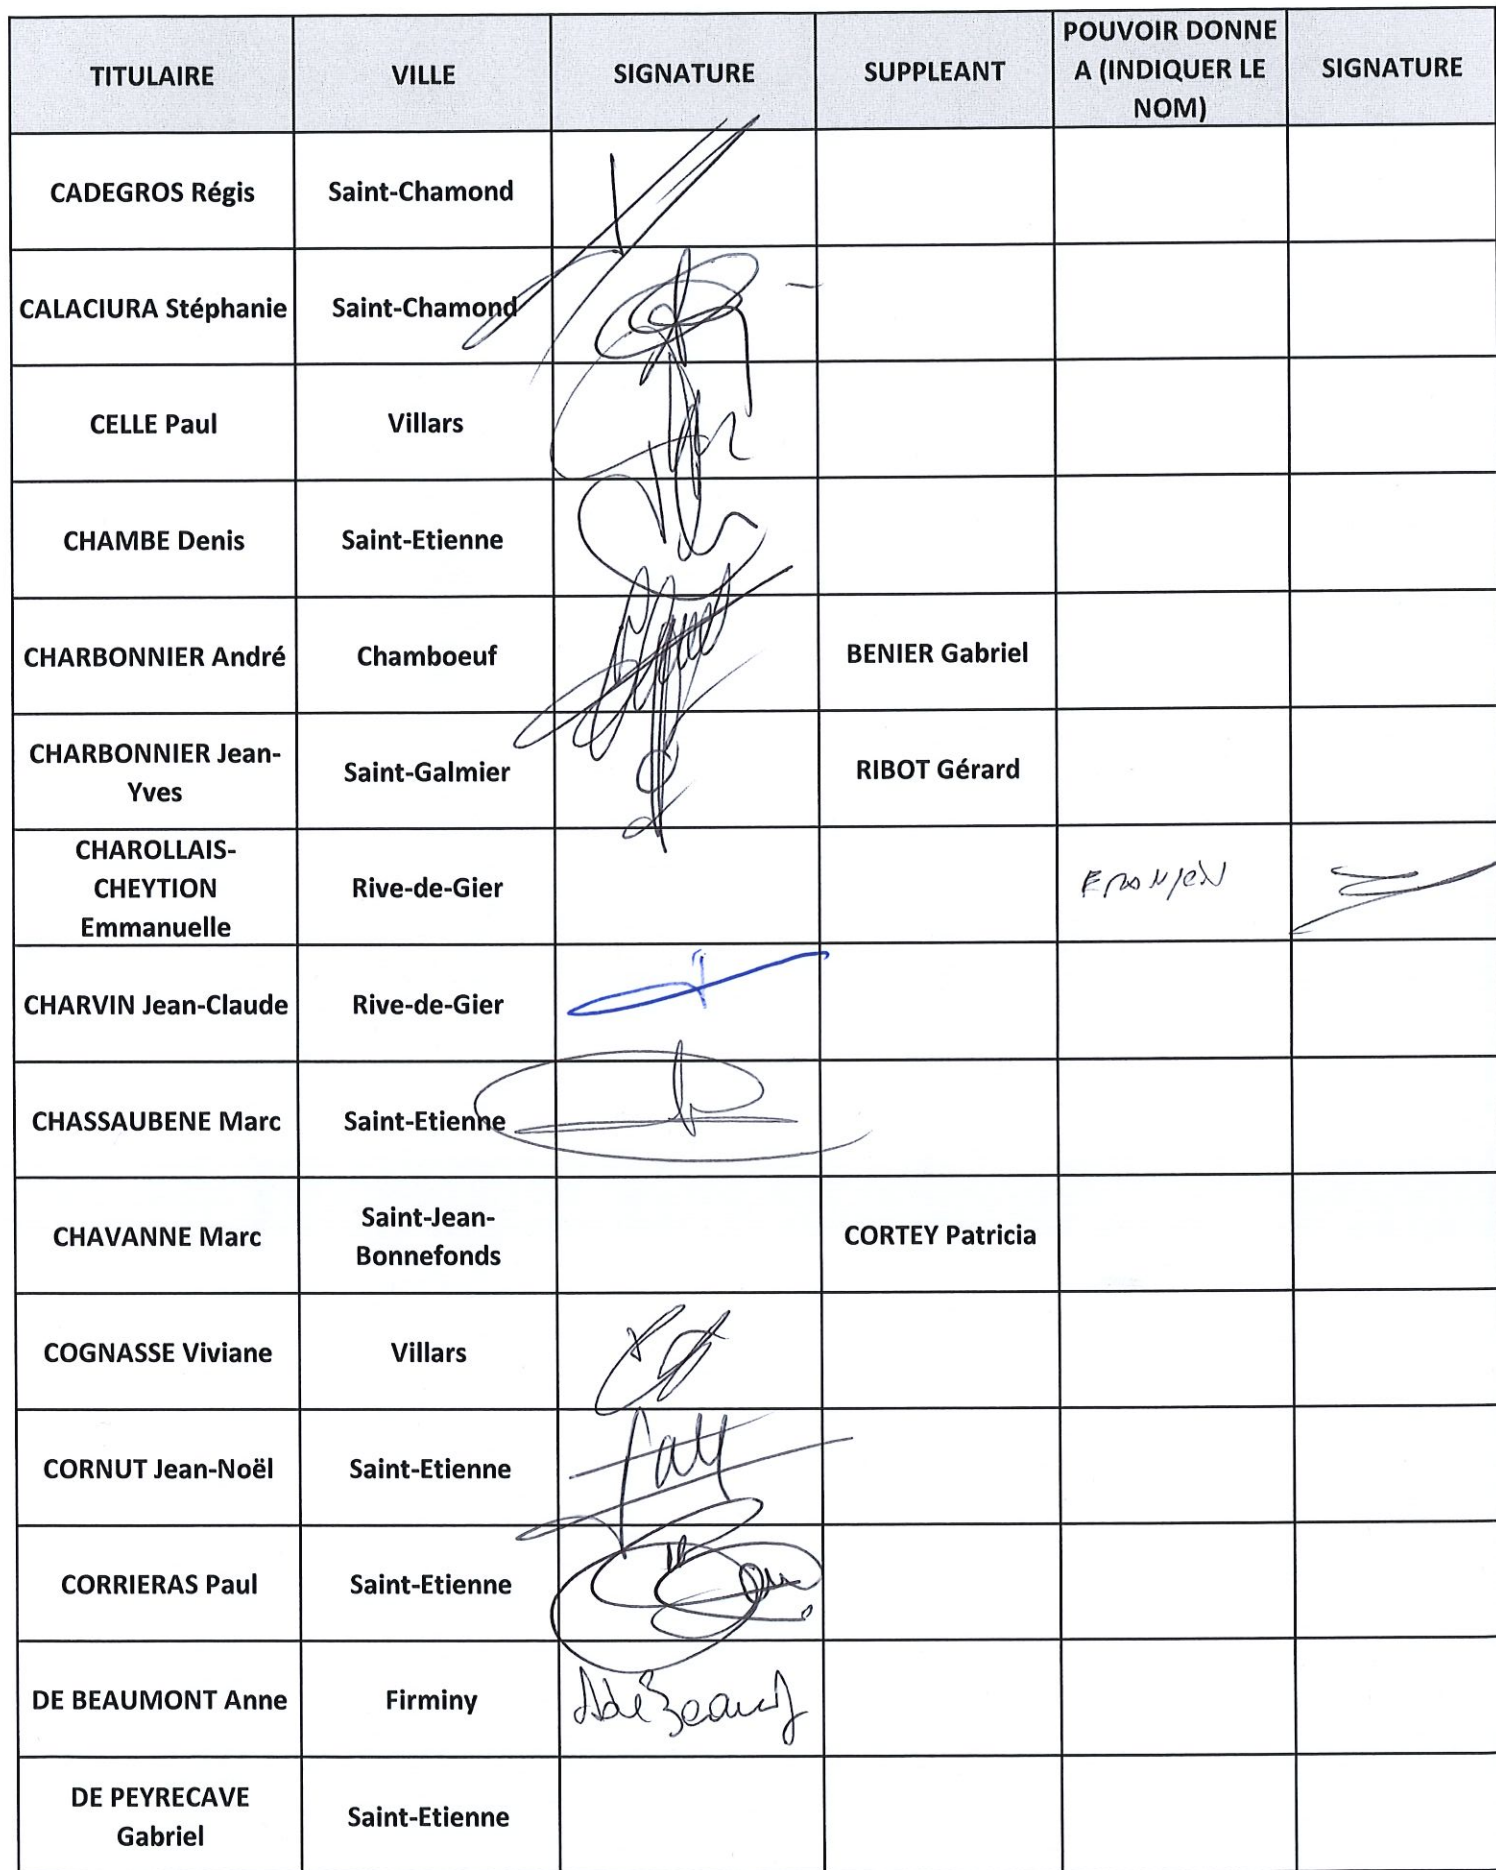 TITULAIRE VILLE SIGNATURE SUPPLEANT POUVOIR DONNE
A (INDIQUER LE
NOM) SIGNATURE
CADEGROS Régis Saint-Chamond
CALACIURA Stéphanie Saint-Chamond
CELLE Paul Villars
CHAMBE Denis Saint-Etienne
CHARBONNIER André Chamboeuf BENIER Gabriel
CHARBONNIER Jean-
Yves Saint-Galmier RIBOT Gérard
CHAROLLAIS-
CHEYTION
Emmanuelle Rive-de-Gier
CHARVIN Jean-Claude Rive-de-Gier
CHASSAUBENE Marc Saint-Etienne
CHAVANNE Marc Saint-Jean-
Bonnefonds CORTEY Patricia
COGNASSE Viviane Villars
CORNUT Jean-Noël Saint-Etienne
CORRIERAS Paul Saint-Etienne
DE BEAUMONT Anne Firminy
DE PEYRECAVE
Gabriel Saint-Etienne